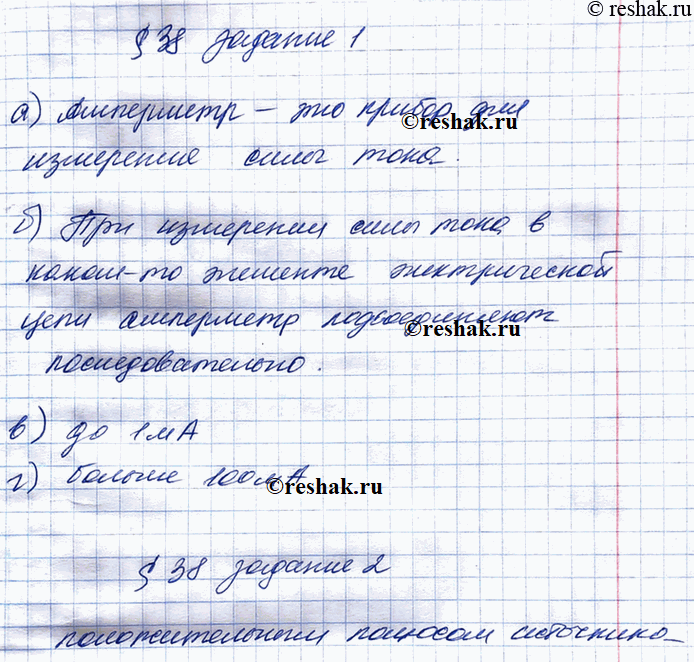 © reshak.ru
§ 38 задание 1
а) Амперметр – это прибор для
©reshak.ru
измерения силы тока.
б) При измерении силы тока в
каком-то элементе электрической
цепи амперметр подсоединяют
©reshak.ru
последовательно.
в) до 1 мА
г) больше 100 мА
©reshak.ru
§ 38 задание 2
положительным полюсом источника-